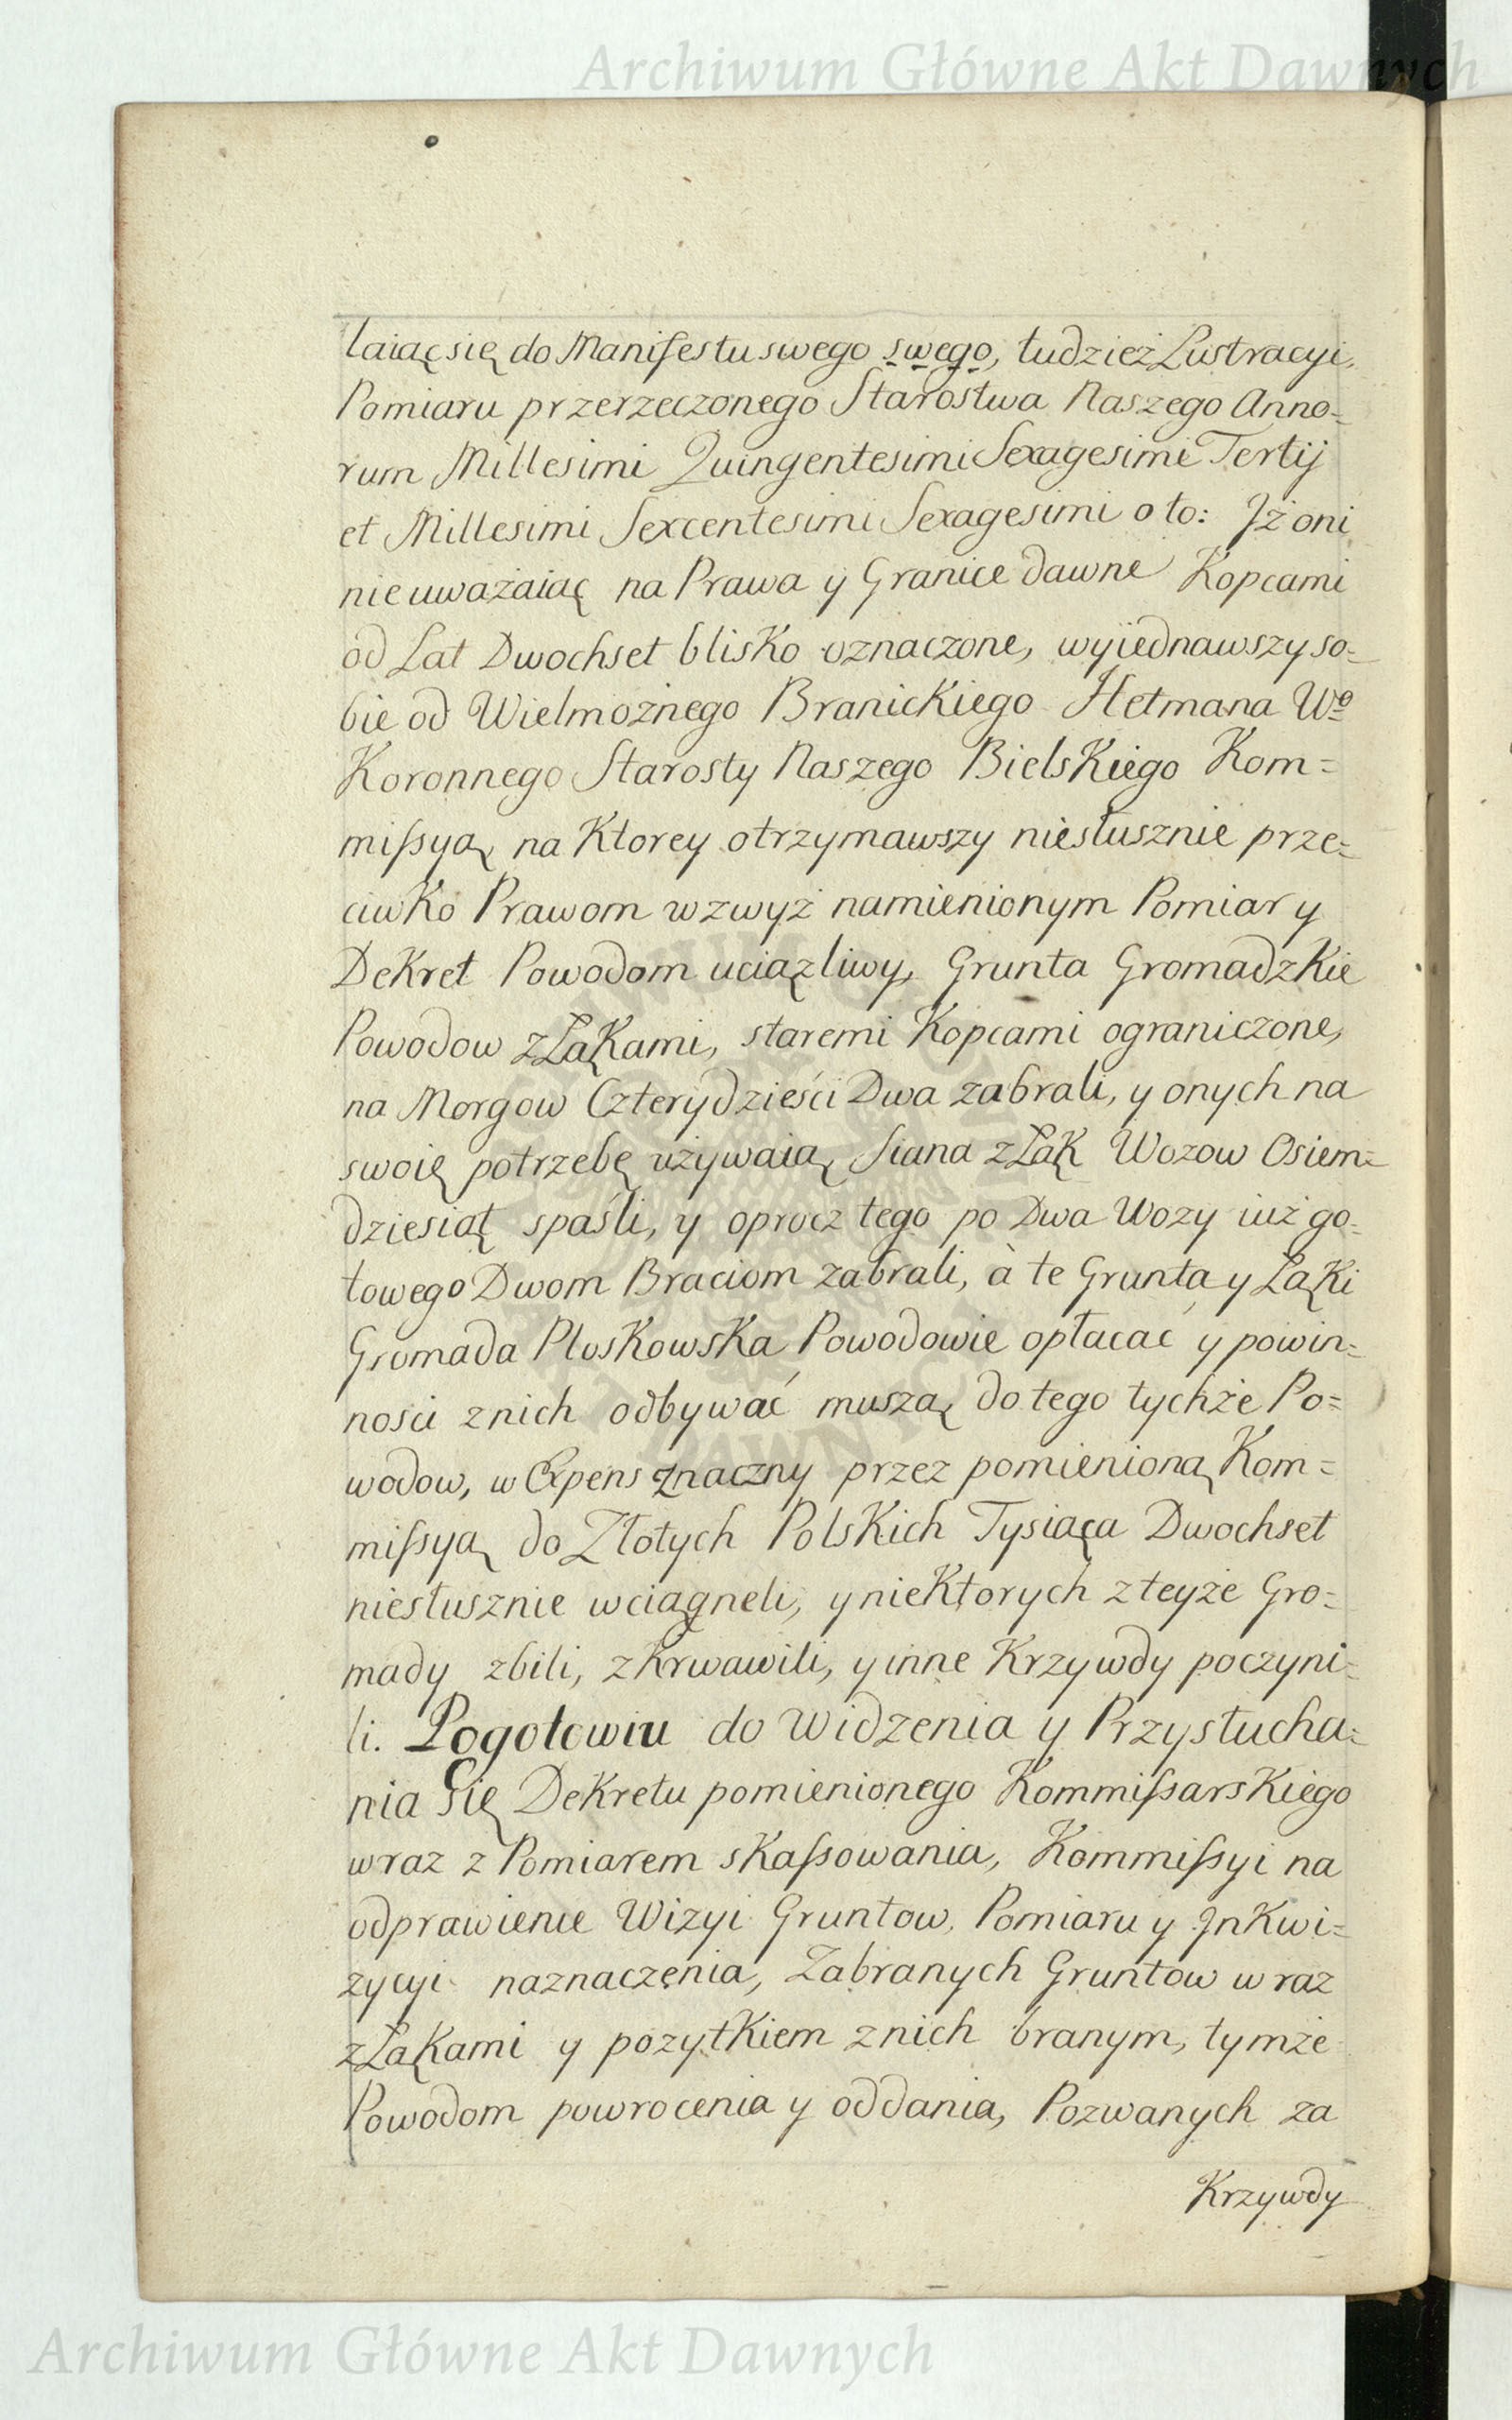 Archiwum Główne Akt Dawnych
laiąc się do Manifestu swego swego, tudzież Lustracyi,
Pomiaru przerzeczonego Starostwa Naszego Anno-
rum Millesimi Quingentesimi Sexagesimi Tertij
et Millesimi Sexcentesimi Sexagesimi o to: Jż oni
nie uważaiąc na Prawa y Granice dawne Kopcami
od Lat Dwochset blisko oznaczone, wyiednawszy so-
bie od Wielmożnego Branickiego Hetmana Wo
Koronnego Starosty Naszego Bielskiego Kom=
missyą na Ktorey otrzymawszy niesłusznie prze=
ciwko Prawom wzwyż namienionym Pomiar y
Dekret Powodom uciązliwy, Grunta Gromadzkie
Powodow z Łąkami, staremi Kopcami ograniczone,
na Morgow Czterydzieści Dwa zabrali, y onych na
swoię potrzebę używaią, Siana z Łąk Wozow Osiem=
dziesiąt spaśli, y oprocz tego po Dwa Wozy iuż go-
towego Dwom Braciom zabrali, à te Grunta y Łąki
Gromada Ploskowska Powodowie opłacać y powin=
nosci z nich odbywać muszą, do tego tychże Po=
wodow, w Expens znaczny przez pomienioną Kom=
missyą do Złotych Polskich Tysiąca Dwochset
niesłusznie wciągneli, y niektorych z teyże Gro=
mady zbili, zkrwawili, y inne Krzywdy poczyni=
li. Pogotowiu do Widzenia y Przysłucha=
nia się Dekretu pomienionego Kommissarskiego
wraz z Pomiarem skassowania, Kommissyi na
odprawienie Wizyi Gruntow, Pomiaru y Jnkwi=
zycyi naznaczenia, Zabranych Gruntow wraz
z Łąkami y pozytkiem z nich branym, tymże
Powodom powrocenia y oddania, Pozwanych za
Krzywdy
Archiwum Główne Akt Dawnych